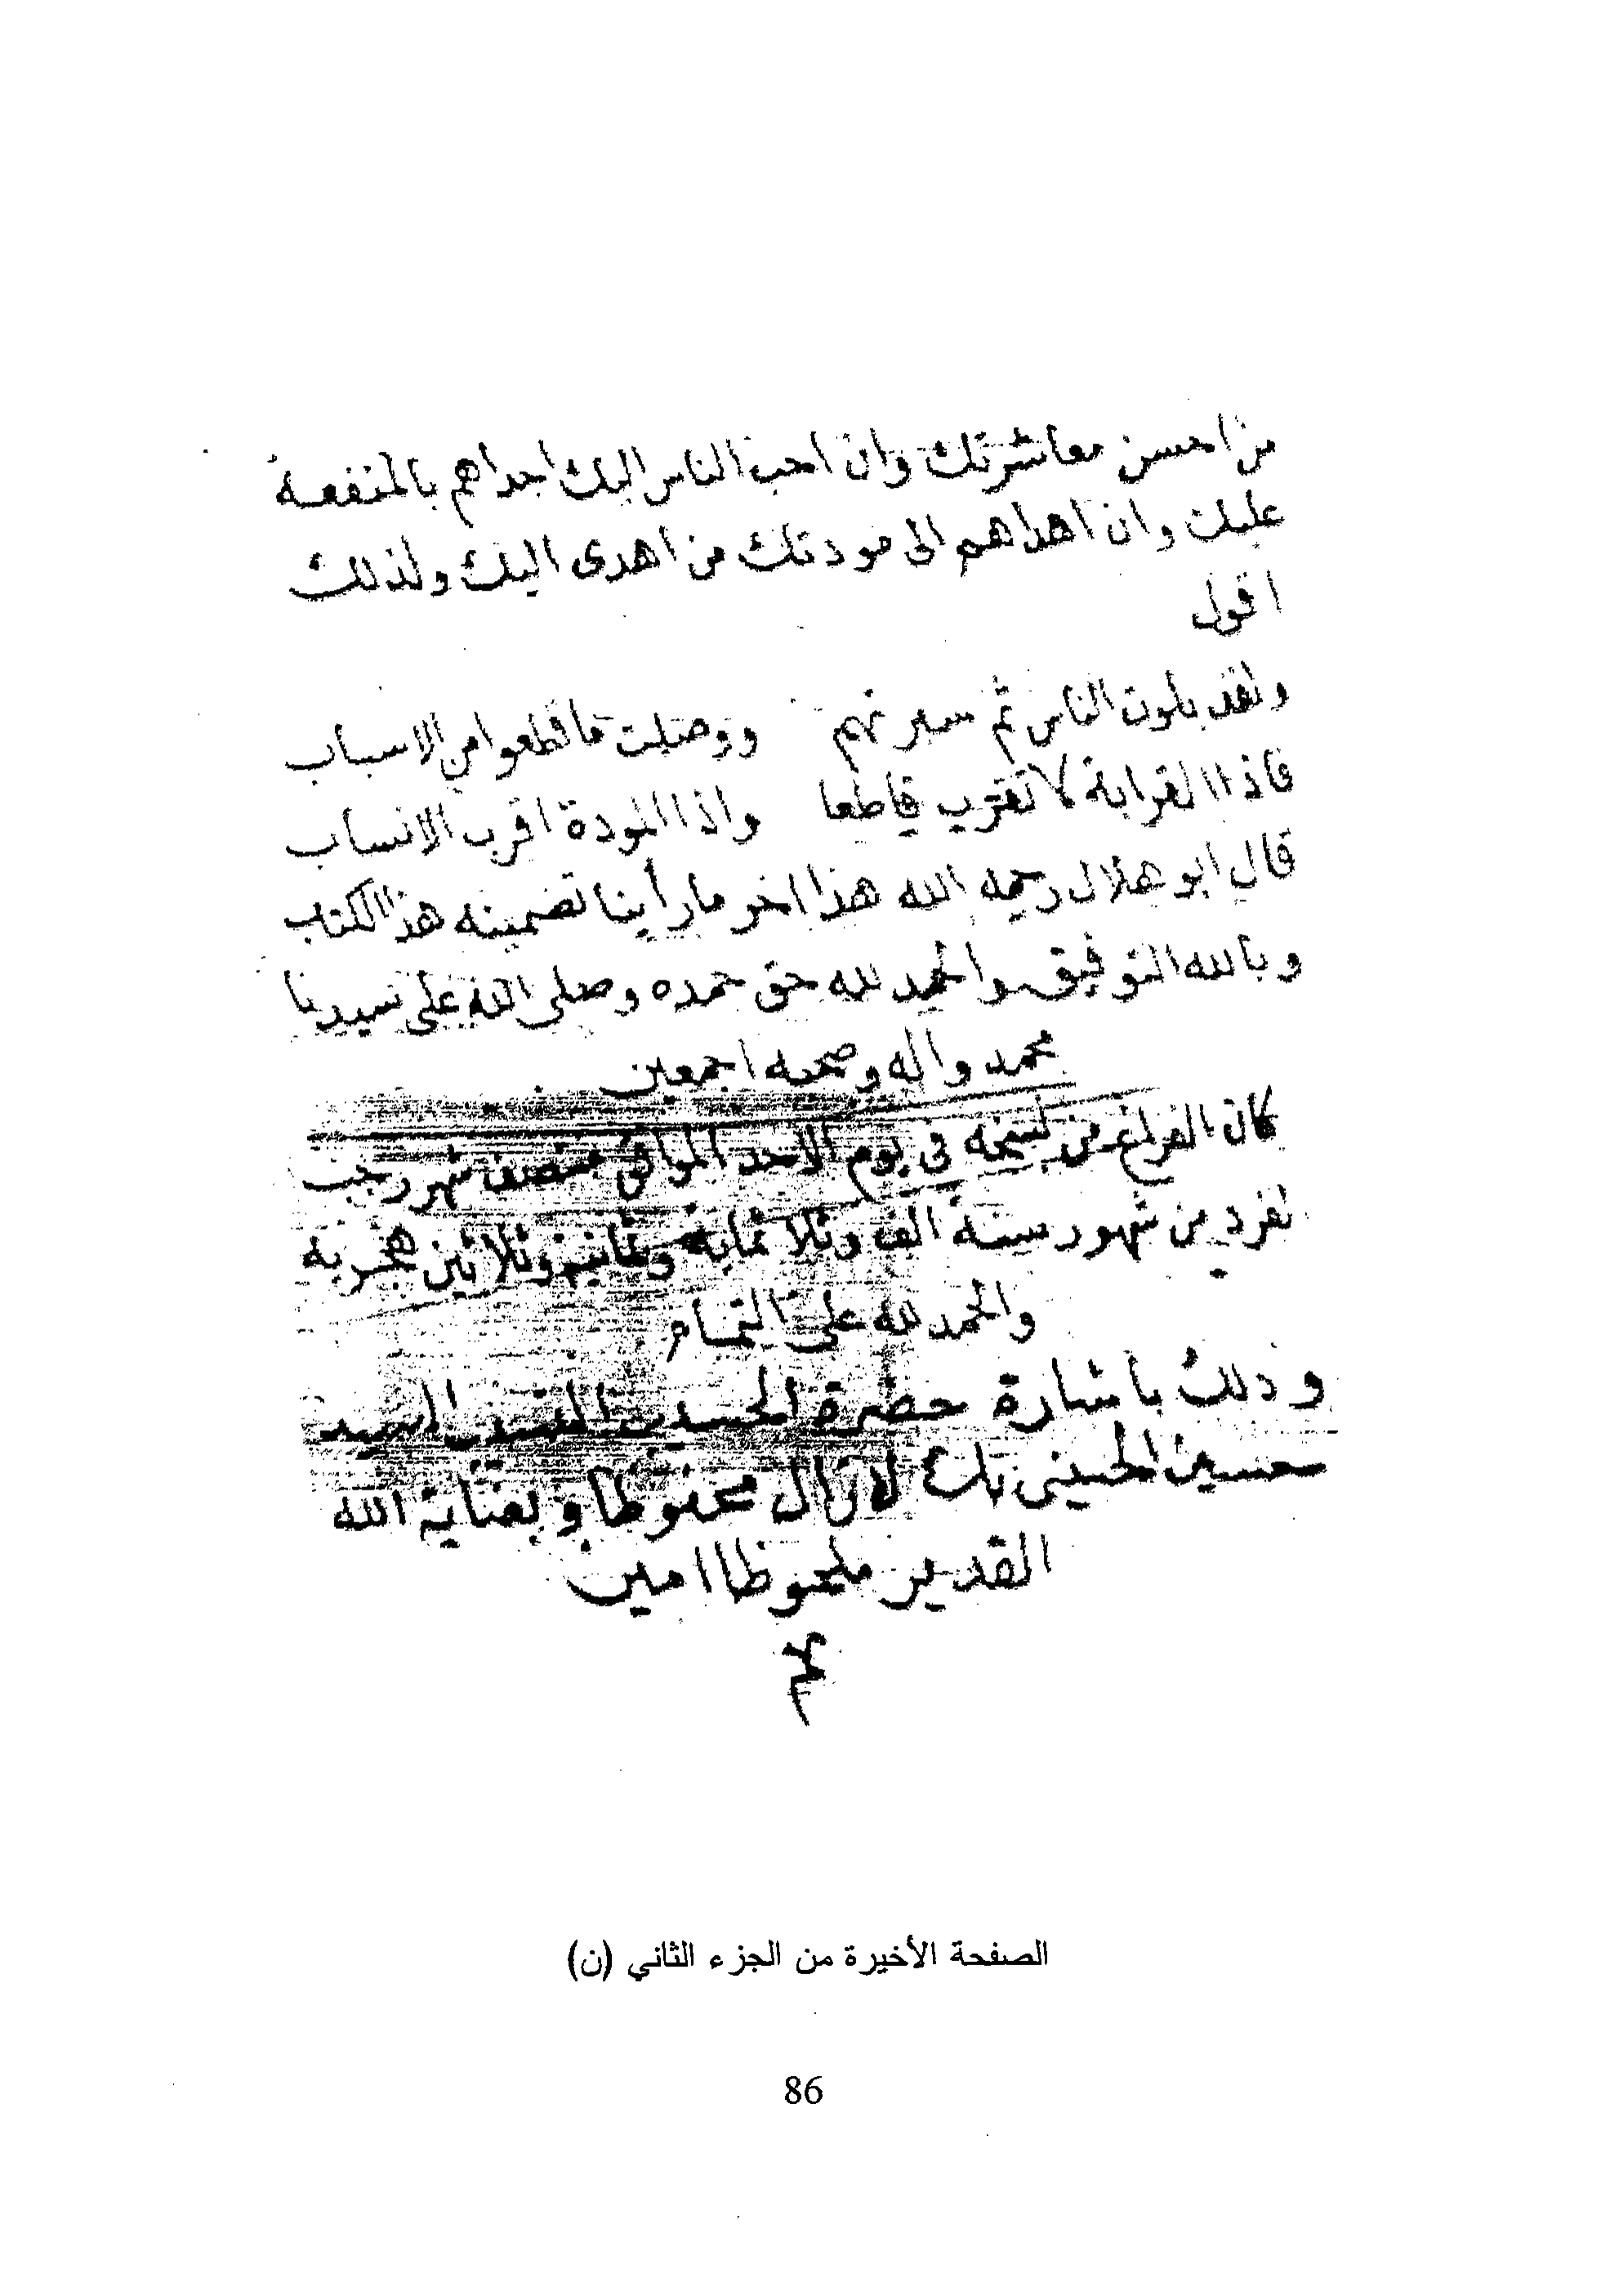 من احسن معاشرتك وان احب الناس اليك اجداهم بالمنفعة
عليك وان اهداهم الى مودتك من اهدى اليك ولذلك
اقول
ولقد بلوت الناس ثم سبرتهم ووصلت ما قطعوا من الاسباب
فاذا القرابة لا تقرب قاطعا واذا المودة اقرب الانساب
قال ابو هلال رحمه الله هذا اخر ما رأينا تضمينه هذا الكتاب
وبالله التوفيق والحمد لله حق حمده وصلى الله على سيدنا
محمد واله وصحبه اجمعين
كان الفراغ من نسخه في يوم الاحد الموافق منتصف شهر رجب
الفرد من شهور سنة الف وثلاثماية وثمانية وثلاثين هجرية
والحمد لله على التمام
وذلك باشارة حضرة الحسيب النسيب السيد
حسين الحسيني بك لازال محفوظا وبعناية الله
القدير ملحوظا امين
الصفحة الأخيرة من الجزء الثاني (ن)
86